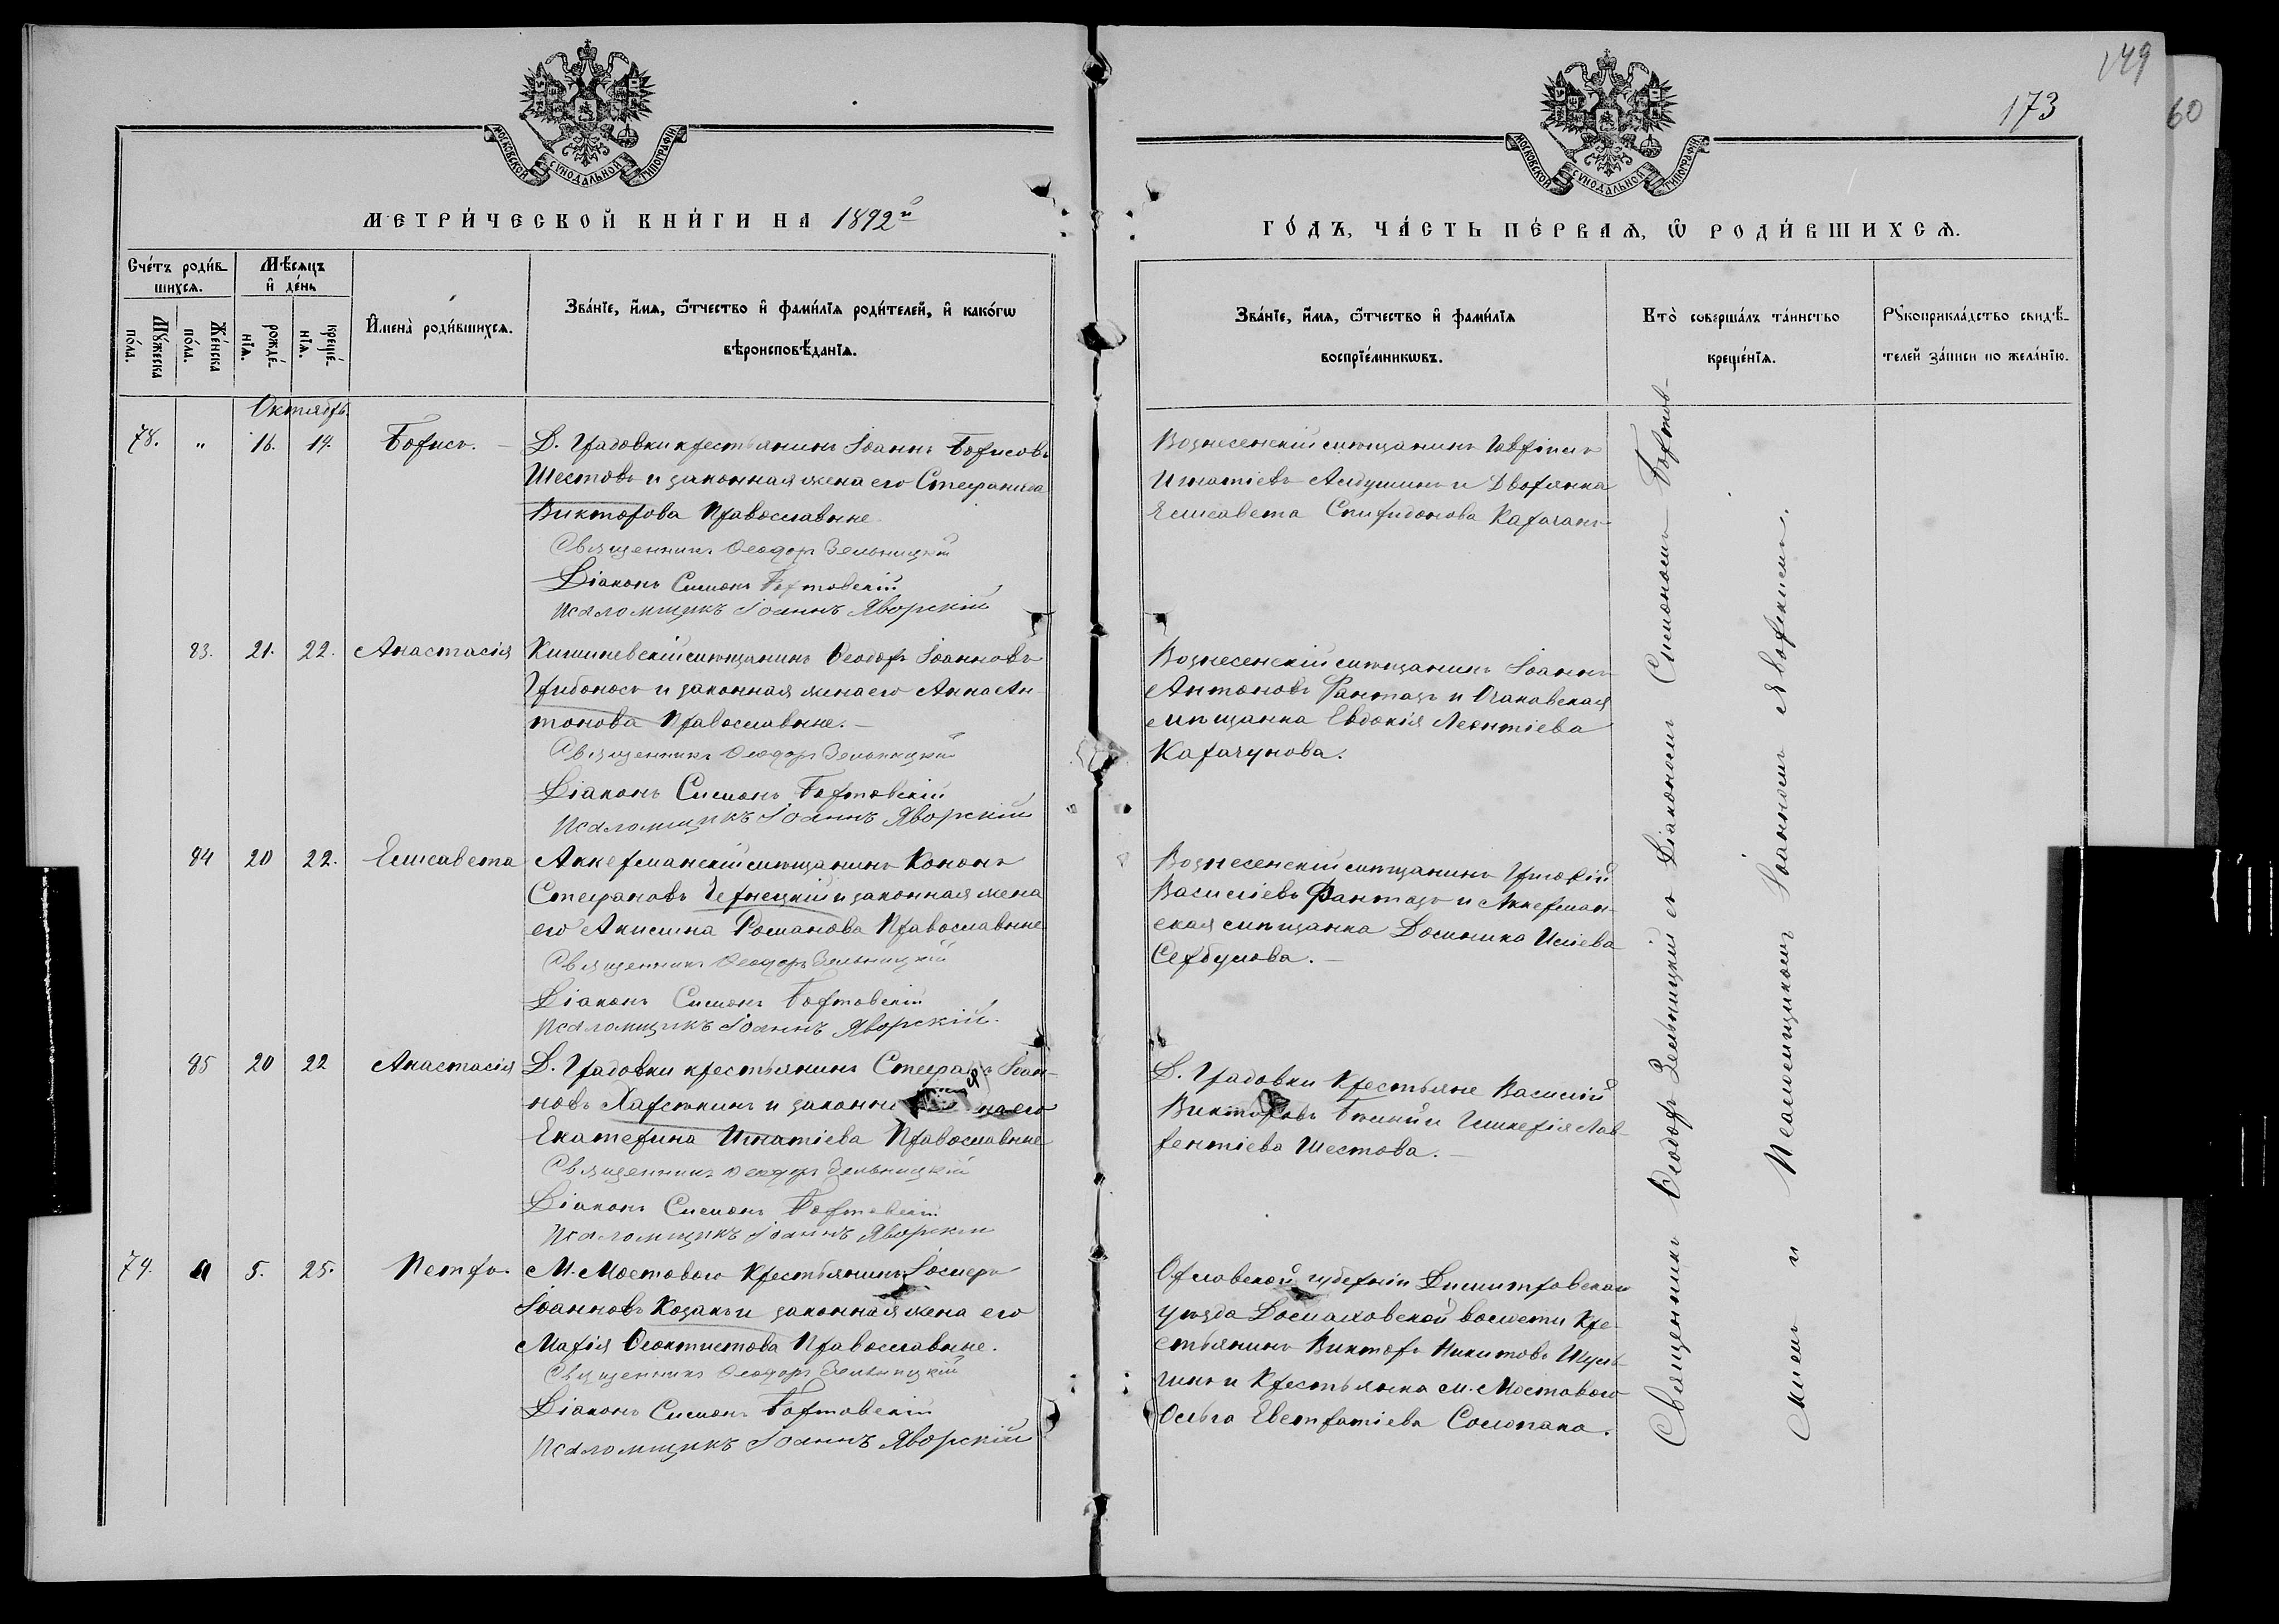 149
173
60
МОСКОВСКОЙ СѴНОДАЛЬНОЙ ТИПОГРАФІИ
МЕТРИ́ЧЕСКОЙ КНИ́ГИ НА 1892й
Сче́тъ роди́вшихсѧ.
Мꙋ́жеска по́ла.
Же́нска по́ла.
Мѣ́сѧцъ и҆ де́нь
рожде́нїѧ.
креще́нїѧ.
И҆мена̀ роди́вшихсѧ.
Зва́нїе, и҆́мѧ, ѻ҆́тчество и҆ фами́лїѧ роди́телей, и҆ како́гѡ
вѣроисповѣ́данїѧ.
Октябрь
78. " 16. 19. Борисъ.
Д. Градовки крестьянинъ Іоаннъ Борисовъ
Шестовъ и законная жена его Стефанида
Викторова Православные
Священникъ Ѳеодоръ Зельницкій
Діаконъ Симонъ Бортовскій
Псаломщикъ Іоаннъ Яворскій
83. 21. 22. Анастасія
Кишиневскій мѣщанинъ Ѳеодоръ Іоанновъ
Грибоносъ и законная жена его Анна Ан-
тонова Православные.
Священникъ Ѳеодоръ Зельницкій
Діаконъ Симонъ Бортовскій
Псаломщикъ Іоаннъ Яворскій
84 20 22. Елисавета
Аккерманскій мѣщанинъ Кононъ
Стефановъ Чернецкій и законная жена
его Акилина Романова Православные
Священникъ Ѳеодоръ Зельницкій
Діаконъ Симонъ Бортовскій
Псаломщикъ Іоаннъ Яворскій.
85 20 22 Анастасія
Д. Градовки крестьянинъ Стефанъ Іоан-
новъ и законн на его
Екатерина Игнатіева Православные
Священникъ Ѳеодоръ Зельницкій
Діаконъ Симонъ Бортовскій
Псаломщикъ Іоаннъ Яворскій
79. 5. 25. Петръ.
М. Мостового Крестьянинъ Іосифъ
Іоанновъ Козакъ и законная жена его
Марія Ѳеоктистова Православные.
Священникъ Ѳеодоръ Зельницкій
Діаконъ Симонъ Бортовскій
Псаломщикъ Іоаннъ Яворскій
МОСКОВСКОЙ СѴНОДАЛЬНОЙ ТИПОГРАФІИ
ГО́ДЪ, ЧА́СТЬ ПЕ́РВАѦ, Ѡ҆ РОДИ́ВШИХСѦ.
Зва́нїе, и҆́мѧ, ѻ҆́тчество и҆ фами́лїѧ
воспрїе́мникѡвъ.
Кто̀ соверша́лъ та́инство
креще́нїѧ.
Рꙋкоприкла́дство свидѣ́-
телей за́писи по жела́нїю.
Вознесенскій мѣщанинъ
Игнатіевъ и Дворянка
Елисавета Спиридонова
Вознесенскій мѣщанинъ Іоаннъ
Антоновъ Фантазъ и Очаковская
мѣщанка Евдокія Леонтіева
Карачунова.
Вознесенскій мѣщанинъ Григорій
Василіевъ Фантазъ и Аккерман-
ская мѣщанка Домника Иліева
Сербулова.
Д. Градовки Крестьяне Василій
Викторовъ и Гликерія Лав-
рентіева Шестова.
Орловской губерніи Димитровскаго
уѣзда Домаховской волости Кре-
стьянинъ Викторъ Никитовъ Шуль-
гинъ и Крестьянка м. Мостового
Ольга Евстратіева Солопака.
Священникъ Ѳеодоръ Зельницкій съ Діакономъ Симономъ Бортов-
скимъ и Псаломщикомъ Іоанномъ Яворскимъ.